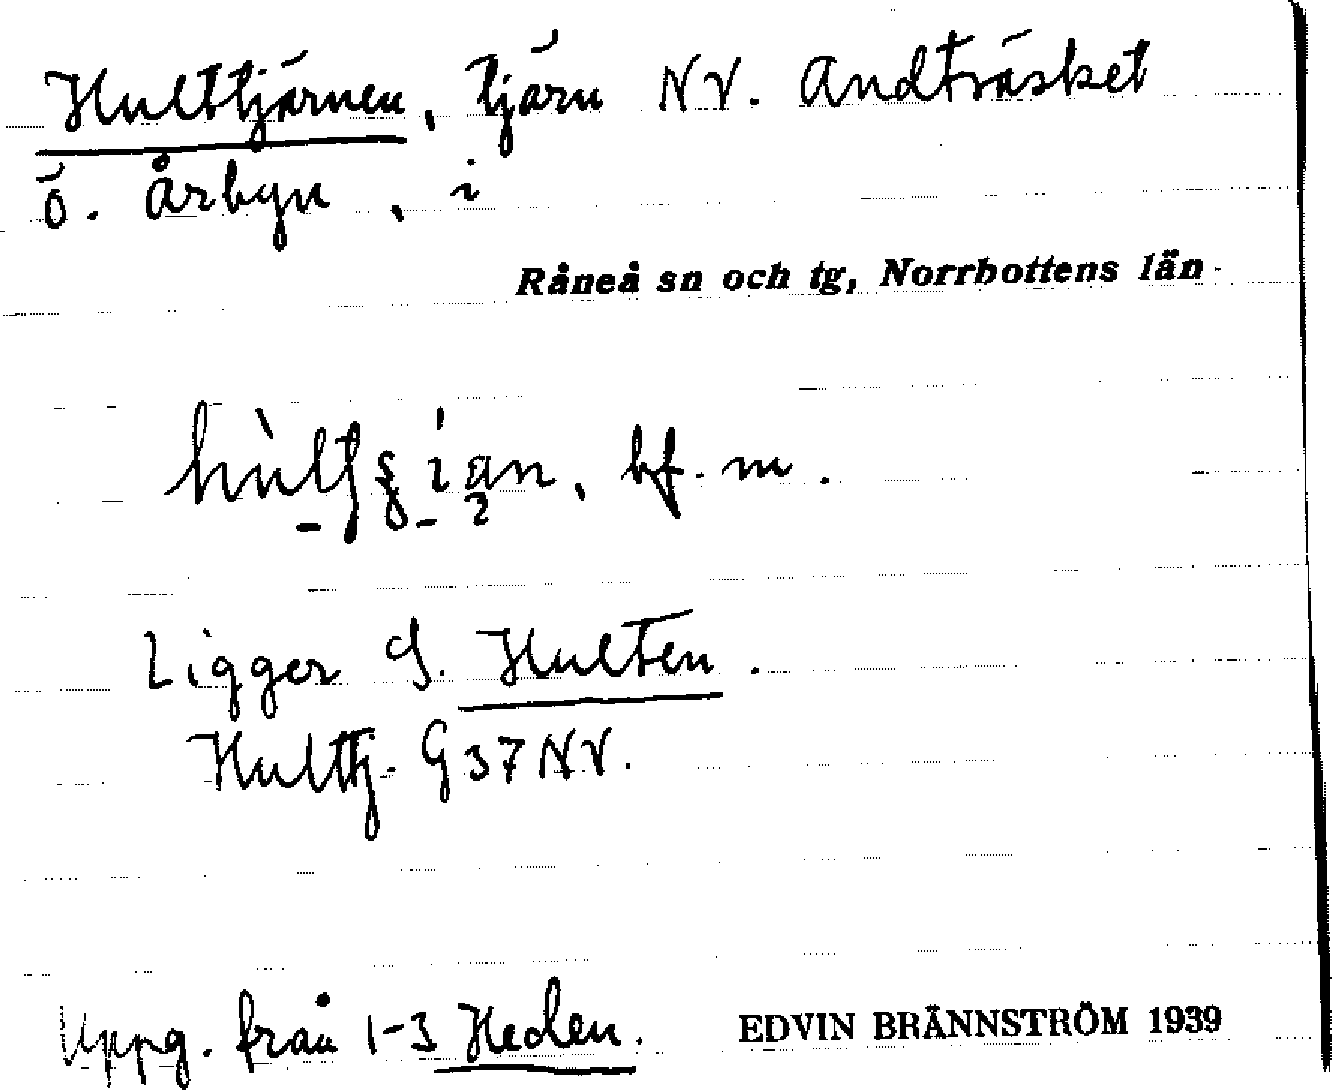 Hulttjärnen, tjärn NV. Andträsket
ö. Årbyn, i
Råneå sn och tg, Norrbottens län
bf. m.
Ligger S. Hulten.
Hulttj. G 37 NV.
Uppg. från 1-3 Heden. EDVIN BRÄNNSTRÖM 1939